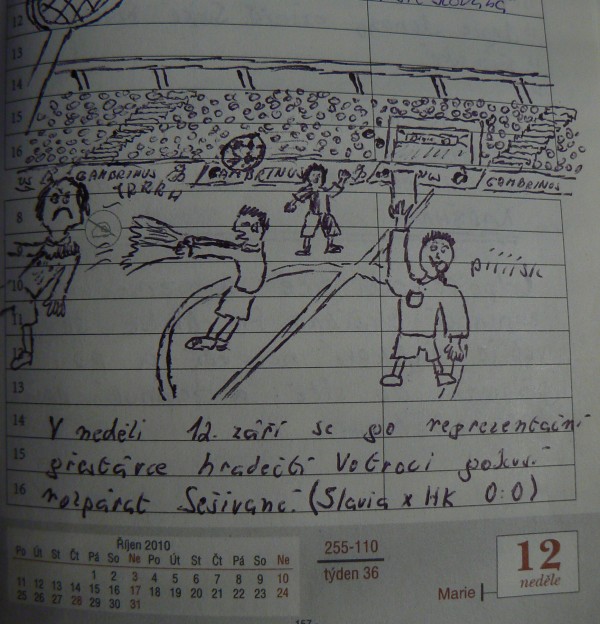 12
13
14
15
16
GAMBRINUS GAMBRINUS GAMBRINUS
CRRRA
8
9
píííísk
10
11
12
13
14 V neděli 12. září se po reprezentační
15 přestávce hradečtí Votroci pokusí
16 rozpárat Sešívané. (Slavia x HK 0:0)
Říjen 2010
Po Út St Čt Pá So Ne Po Út St Čt Pá So Ne
1 2 3 4 5 6 7 8 9 10
11 12 13 14 15 16 17 18 19 20 21 22 23 24
25 26 27 28 29 30 31
255-110
týden 36
Marie
12
neděle
157